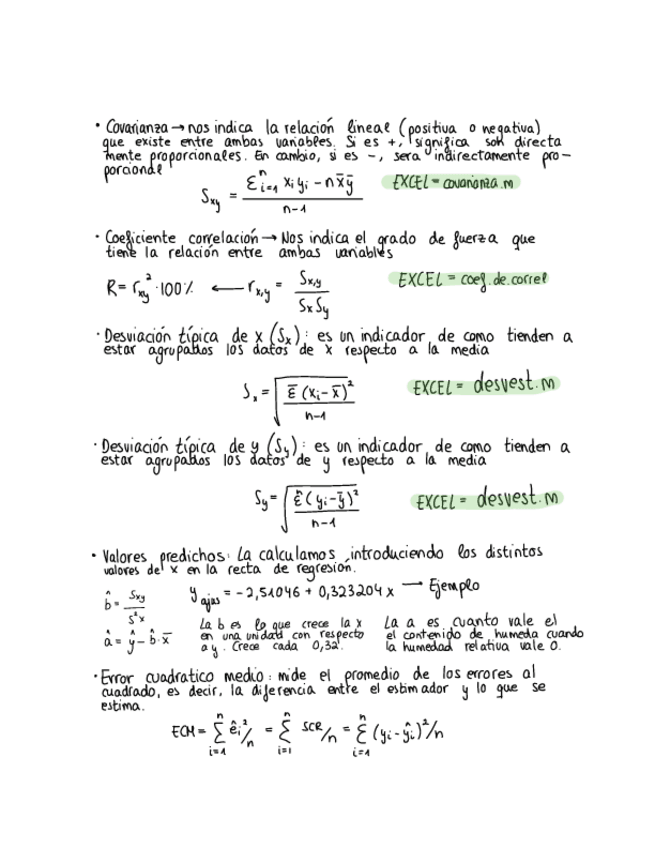 • Covarianza → nos indica la relación lineal (positiva o negativa)
que existe entre ambas variables. Si es +, significa son directa
mente proporcionales. En cambio, si es -, sera indirectamente pro-
porcional
Sxy = Σⁿᵢ₌₁ xi yi - n x̄ ȳ / n-1 EXCEL = covarianza.m
· Coeficiente correlación → Nos indica el grado de fuerza que
tiene la relación entre ambas variables
R = r²xy · 100% ← rx,y = Sx,y / Sx Sy EXCEL = coef.de.correl
· Desviación típica de x (Sx): es un indicador de como tienden a
estar agrupados los datos de x respecto a la media
Sx = √ Σ (xi - x̄)² / n-1 EXCEL = desvest.m
· Desviación típica de y (Sy): es un indicador de como tienden a
estar agrupados los datos de y respecto a la media
Sy = √ Σ (yi - ȳ)² / n-1 EXCEL = desvest.m
• Valores predichos: La calculamos introduciendo los distintos
valores de x en la recta de regresión.
b̂ = Sxy / S²x y ajus = -2,51046 + 0,323204 x — Ejemplo
â = ŷ - b̂ · x̄
La b es lo que crece la x
en una unidad con respecto
a y. Crece cada 0,32.
La a es cuanto vale el
el contenido de humeda cuando
la humedad relativa vale 0.
· Error cuadratico medio: mide el promedio de los errores al
cuadrado, es decir, la diferencia entre el estimador y lo que se
estima.
ECM = Σⁿᵢ₌₁ êi²/n = Σⁿᵢ₌₁ SCR/n = Σⁿᵢ₌₁ (yi - ŷi)²/n